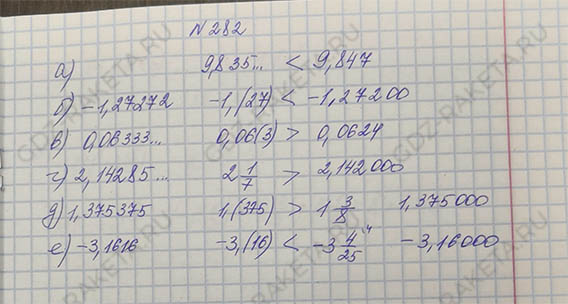 N 282
а) 9,835... < 9,847
б) -1,27272 -1,(27) < -1,27200
в) 0,06333... 0,06(3) > 0,0624
г) 2,14285... 2 1/7 > 2,142000
д) 1,375375 1,(375) > 1 3/8 1,375000
е) -3,1616 -3,(16) < -3 4/25 -3,16000
GDZ-RAKETA.RU